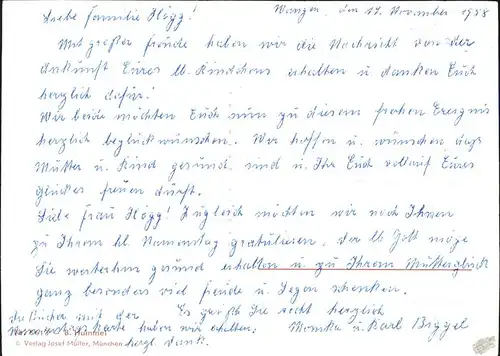 Wangen, den 17. November 1958
Liebe Familie Högg!
Mit großer Freude haben wir die Nachricht von der
Ankunft Eures lb. Kindchens erhalten u. danken Euch
herzlich dafür!
Wir beide möchten Euch nun zu diesem frohen Ereignis
herzlich beglückwünschen. Wir hoffen u. wünschen, daß
Mutter u. Kind gesund sind u. Ihr Euch vollauf Eures
Glückes freuen dürft.
Liebe Frau Högg! Zugleich möchten wir noch Ihnen
zu Ihrem hl. Namenstag gratulieren, der lb. Gott möge
Sie weiterhin gesund erhalten u. zu Ihrem Mutterglück
ganz besonders viel Freude u. Segen schenken.
Es grüßt Sie recht herzlich
Monika u. Karl Biggel
die Bücher mit der
haben wir erhalten.
herzl. Dank.
Hummel
© Verlag Josef Müller, München